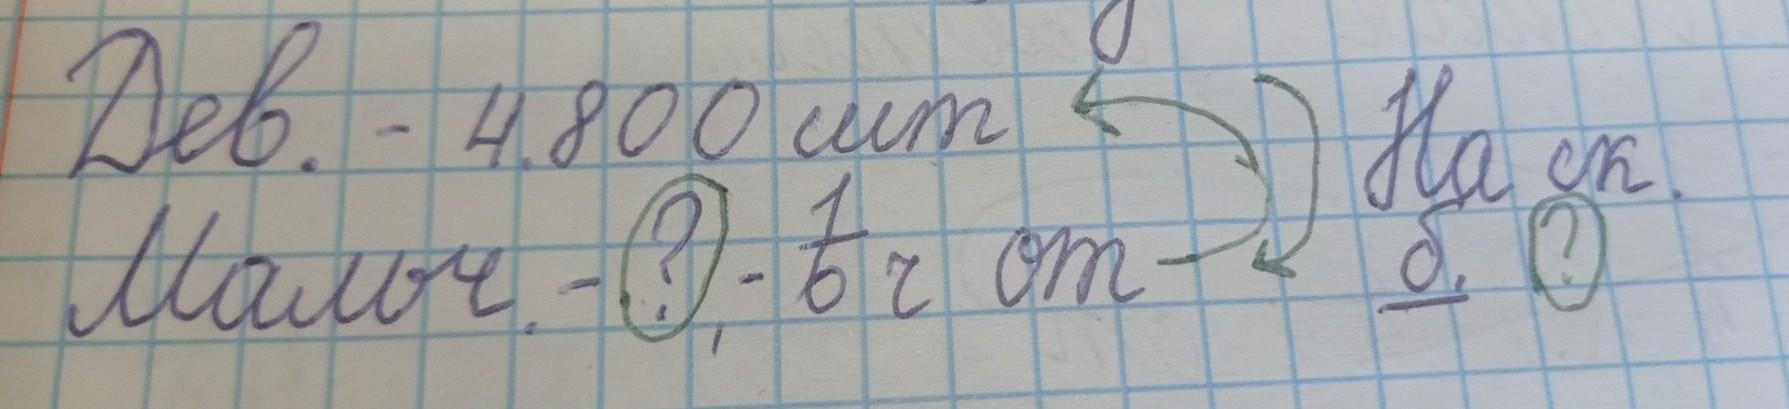 Дев. - 4.800 шт
Мальч. - ?, - 1/6 ч от
На ск.
б. ?